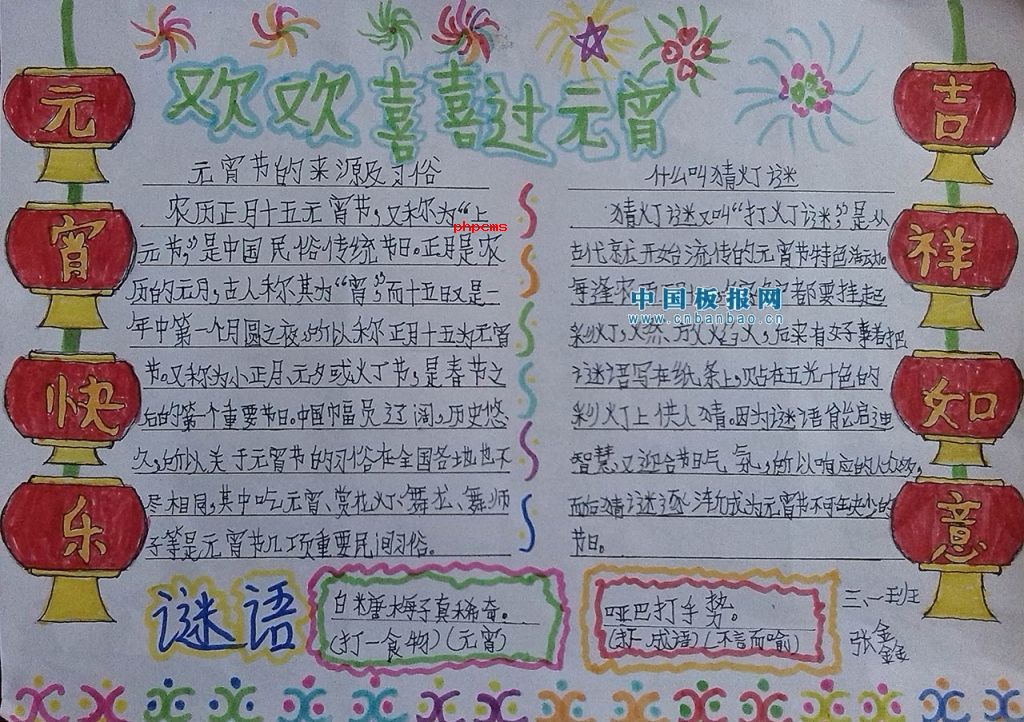 欢欢喜喜过元宵
元
宵
快
乐
吉
祥
如
意
元宵节的来源及习俗
农历正月十五元宵节，又称为“上
元节”，是中国民俗传统节日。正月是农
历的元月，古人称其为“宵”，而十五日又是一
年中第一个月圆之夜，所以称正月十五为元宵
节。又称为小正月、元夕或灯节，是春节之
后的第一个重要节日。中国幅员辽阔，历史悠
久，所以关于元宵节的习俗在全国各地也不
尽相同，其中吃元宵、赏花灯、舞龙、舞狮
子等是元宵节几项重要民间习俗。
phpcms
什么叫猜灯谜
猜灯谜又叫“打灯谜”，是从
古代就开始流传的元宵节特色活动。
每逢农历正月十 都要挂起
彩灯，又燃放火 ，后来有好事者把
谜语写在纸条上，贴在五光十色的
彩灯上供人猜。因为谜语能启迪
智慧，又迎合节日气氛，所以响应的人众多，
而后猜谜逐渐成为元宵节不可缺少的
节日。
中国板报网
www.cnbanbao.cn
谜语
白糖梅子真稀奇。
(打一食物)(元宵)
哑巴打手势。
(打一成语)(不言而喻)
三、一班
张鑫鑫